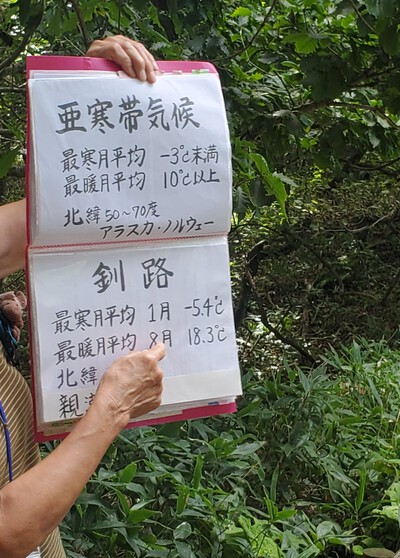 亜寒帯気候
最寒月平均 -3℃未満
最暖月平均 10℃以上
北緯50～70度
アラスカ・ノルウェー
釧路
最寒月平均 1月 -5.4℃
最暖月平均 8月 18.3℃
北緯
親